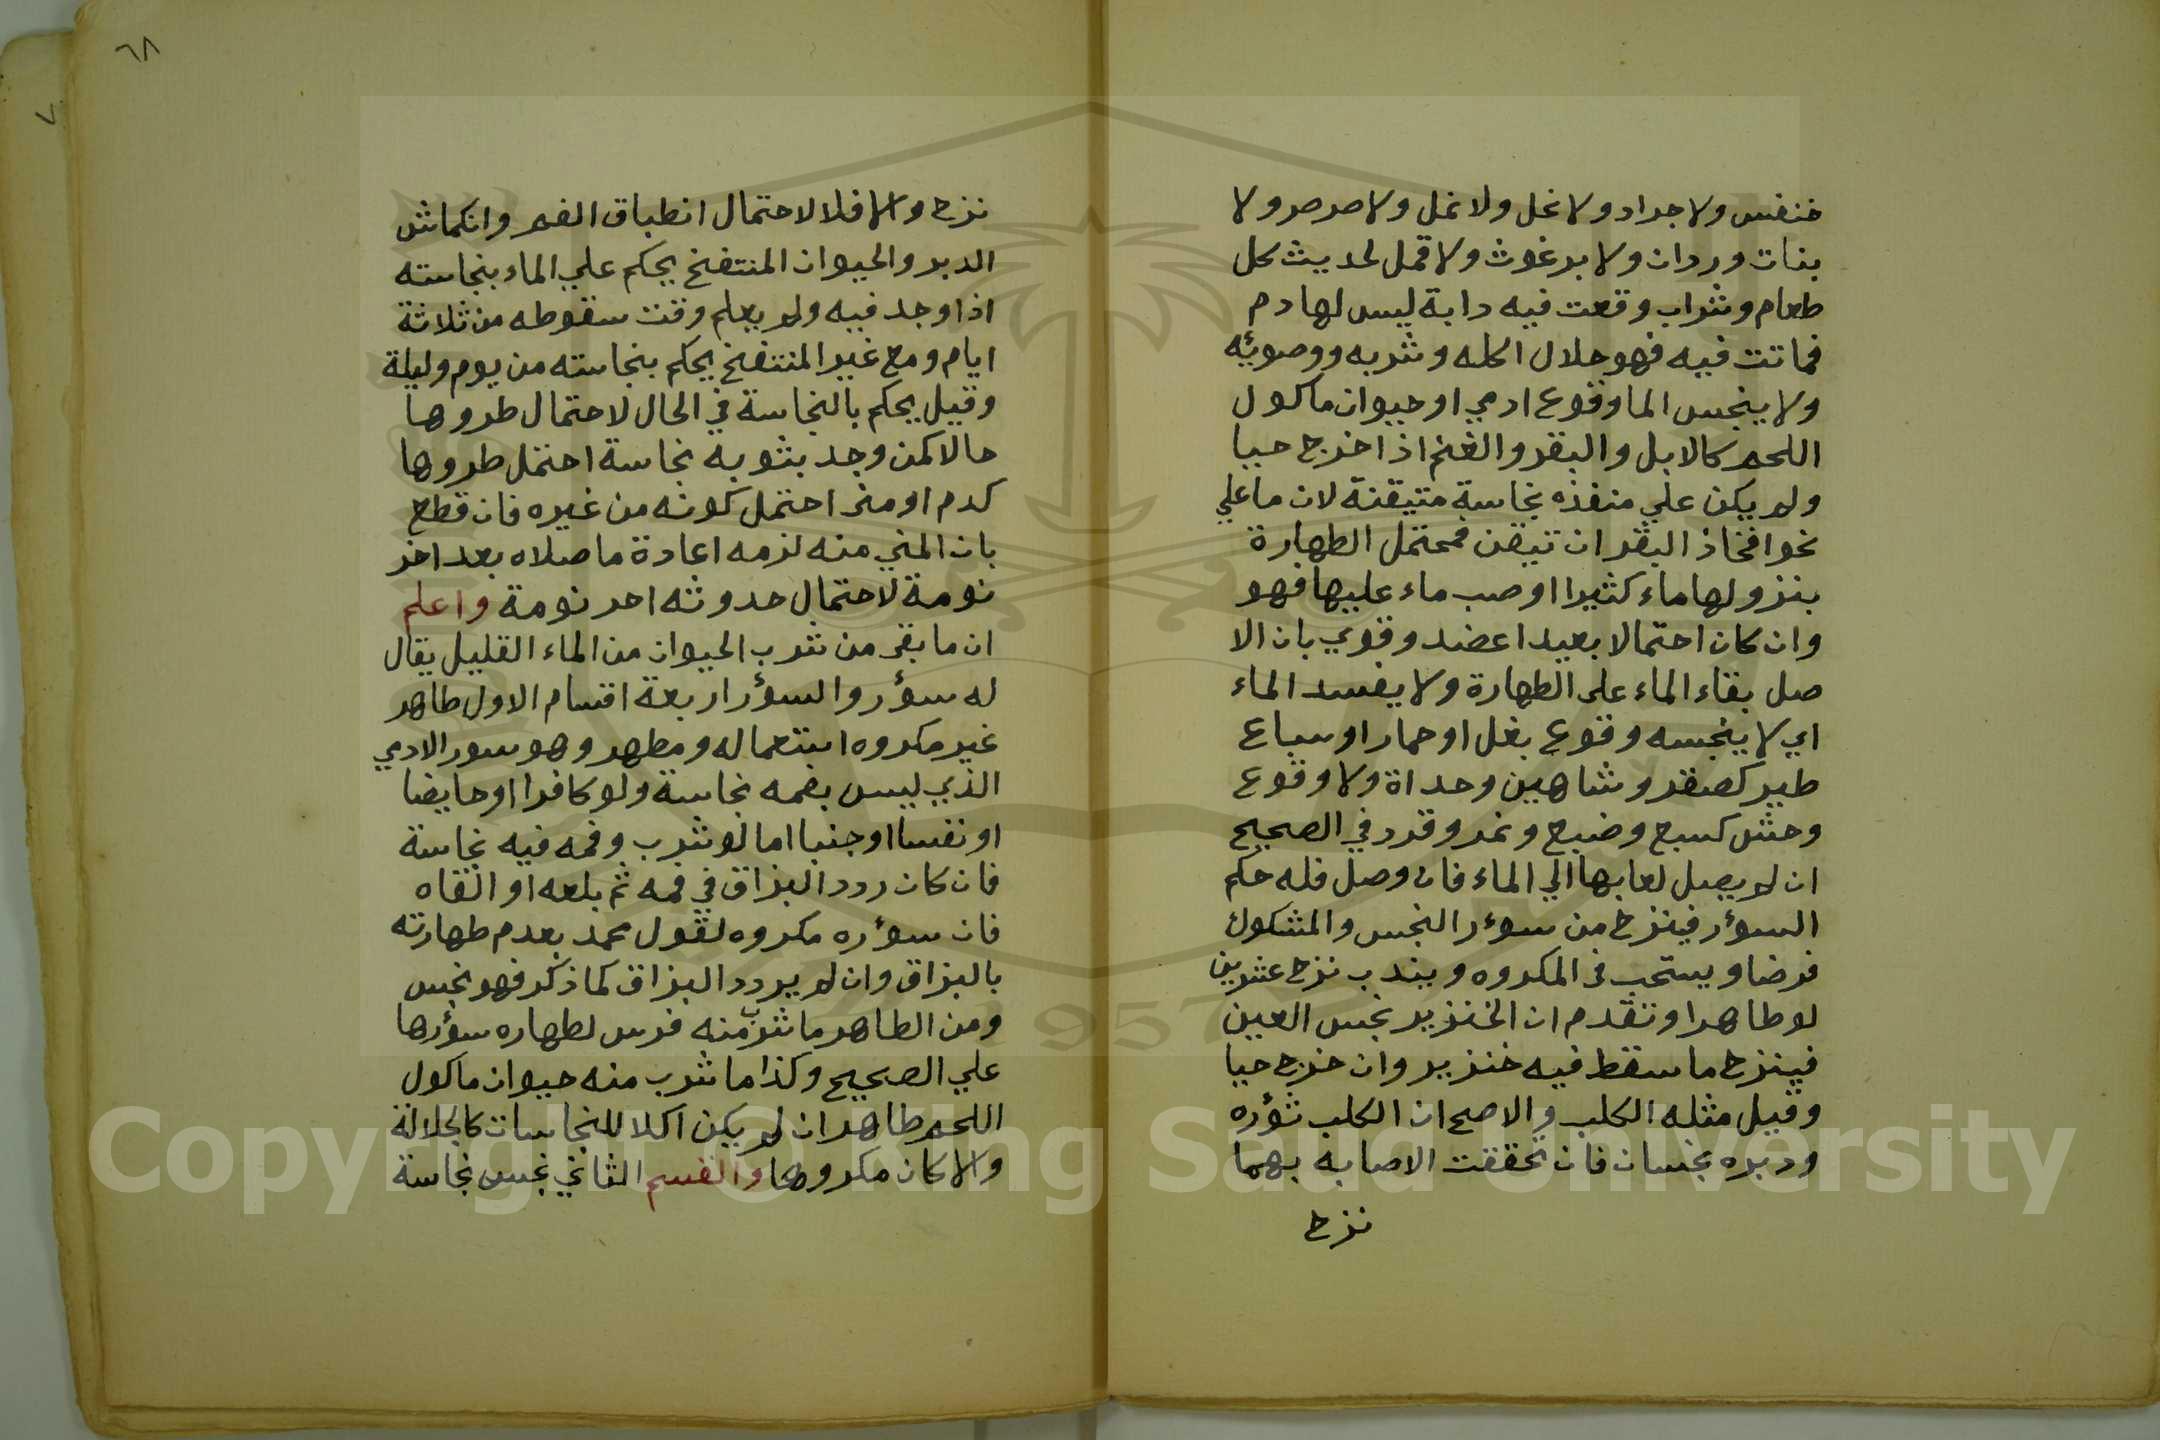 خنفس ولا جراد ولا نحل ولا نمل ولا صرصر ولا
بنات وردان ولا برغوث ولا قمل لحديث كل
طعام وشراب وقعت فيه دابة ليس لها دم
فماتت فيه فهو حلال اكله وشربه ووضوئه
ولا ينجس الما وقوع ادمي او حيوان ماكول
اللحم كالابل والبقر والغنم اذا اخرج حيا
ولم يكن علي منفذه نجاسة متيقنة لان ما علي
نحو افخاذ البقر ان تيقن فمحتمل الطهارة
بنزولها ماء كثيرا او صب ماء عليها فهو
وان كان احتمالا بعيدا اعضد وقوي بان الا
صل بقاء الماء على الطهارة ولا يفسد الماء
اي لا ينجسه وقوع بغل او حمار او سباع
طير كصقر وشاهين وحداة ولا وقوع
وحش كسبع وضبع ونمر وقرد في الصحيح
ان لم يصل لعابها الي الماء فان وصل فله حكم
السؤر فينزح من سوءر النجس والمشكوك
فرضا ويستحب في المكروه ويندب نزح عشرين
لو طاهرا وتقدم ان الخنزير نجس العين
فينزح ما سقط فيه خنزير وان خرج حيا
وقيل مثله الكلب والاصح ان الكلب ثؤره
ودبره نجسان فان تحققت الاصابه بهما
نزح
٦٨
٧
نزح والا فلا لاحتمال انطباق الفم وانكماش
الدبر والحيوان المنتفخ يحكم علي الماء بنجاسته
اذا وجد فيه ولم يعلم وقت سقوطه من ثلاثة
ايام ومع غير المنتفخ يحكم بنجاسته من يوم وليلة
وقيل يحكم بالنجاسة في الحال لاحتمال طروها
حالا كمن وجد بثوبه نجاسة احتمل طروها
كدم او مني احتمل كونه من غيره فان قطع
بان المني منه لزمه اعادة ما صلاه بعد اخر
نومة لاحتمال حدوثه احر نومة واعلم
ان ما بقي من شرب الحيوان من الماء القليل يقال
له سؤر والسؤر اربعة اقسام الاول طاهر
غير مكروه استعماله ومطهر وهو سور الادمي
الذي ليس بفمه نجاسة ولو كافرا او حايضا
او نفسا او جنبا اما لو شرب وفمه فيه نجاسة
فان كان ردد البزاق في فمه ثم بلعه او القاه
فان سوءره مكروه لقول محمد بعدم طهارته
بالبزاق وان لم يردد البزاق كما ذكر فهو نجس
ومن الطاهر ما شرب منه فرس لطهاره سؤرها
علي الصحيح وكذا ما شرب منه حيوان ماكول
اللحم طاهر ان لم يكن اكلا للنجاسات كالجلالة
والا كان مكروها والقسم الثاني نجس نجاسة
Copyright © King Saud University
1957